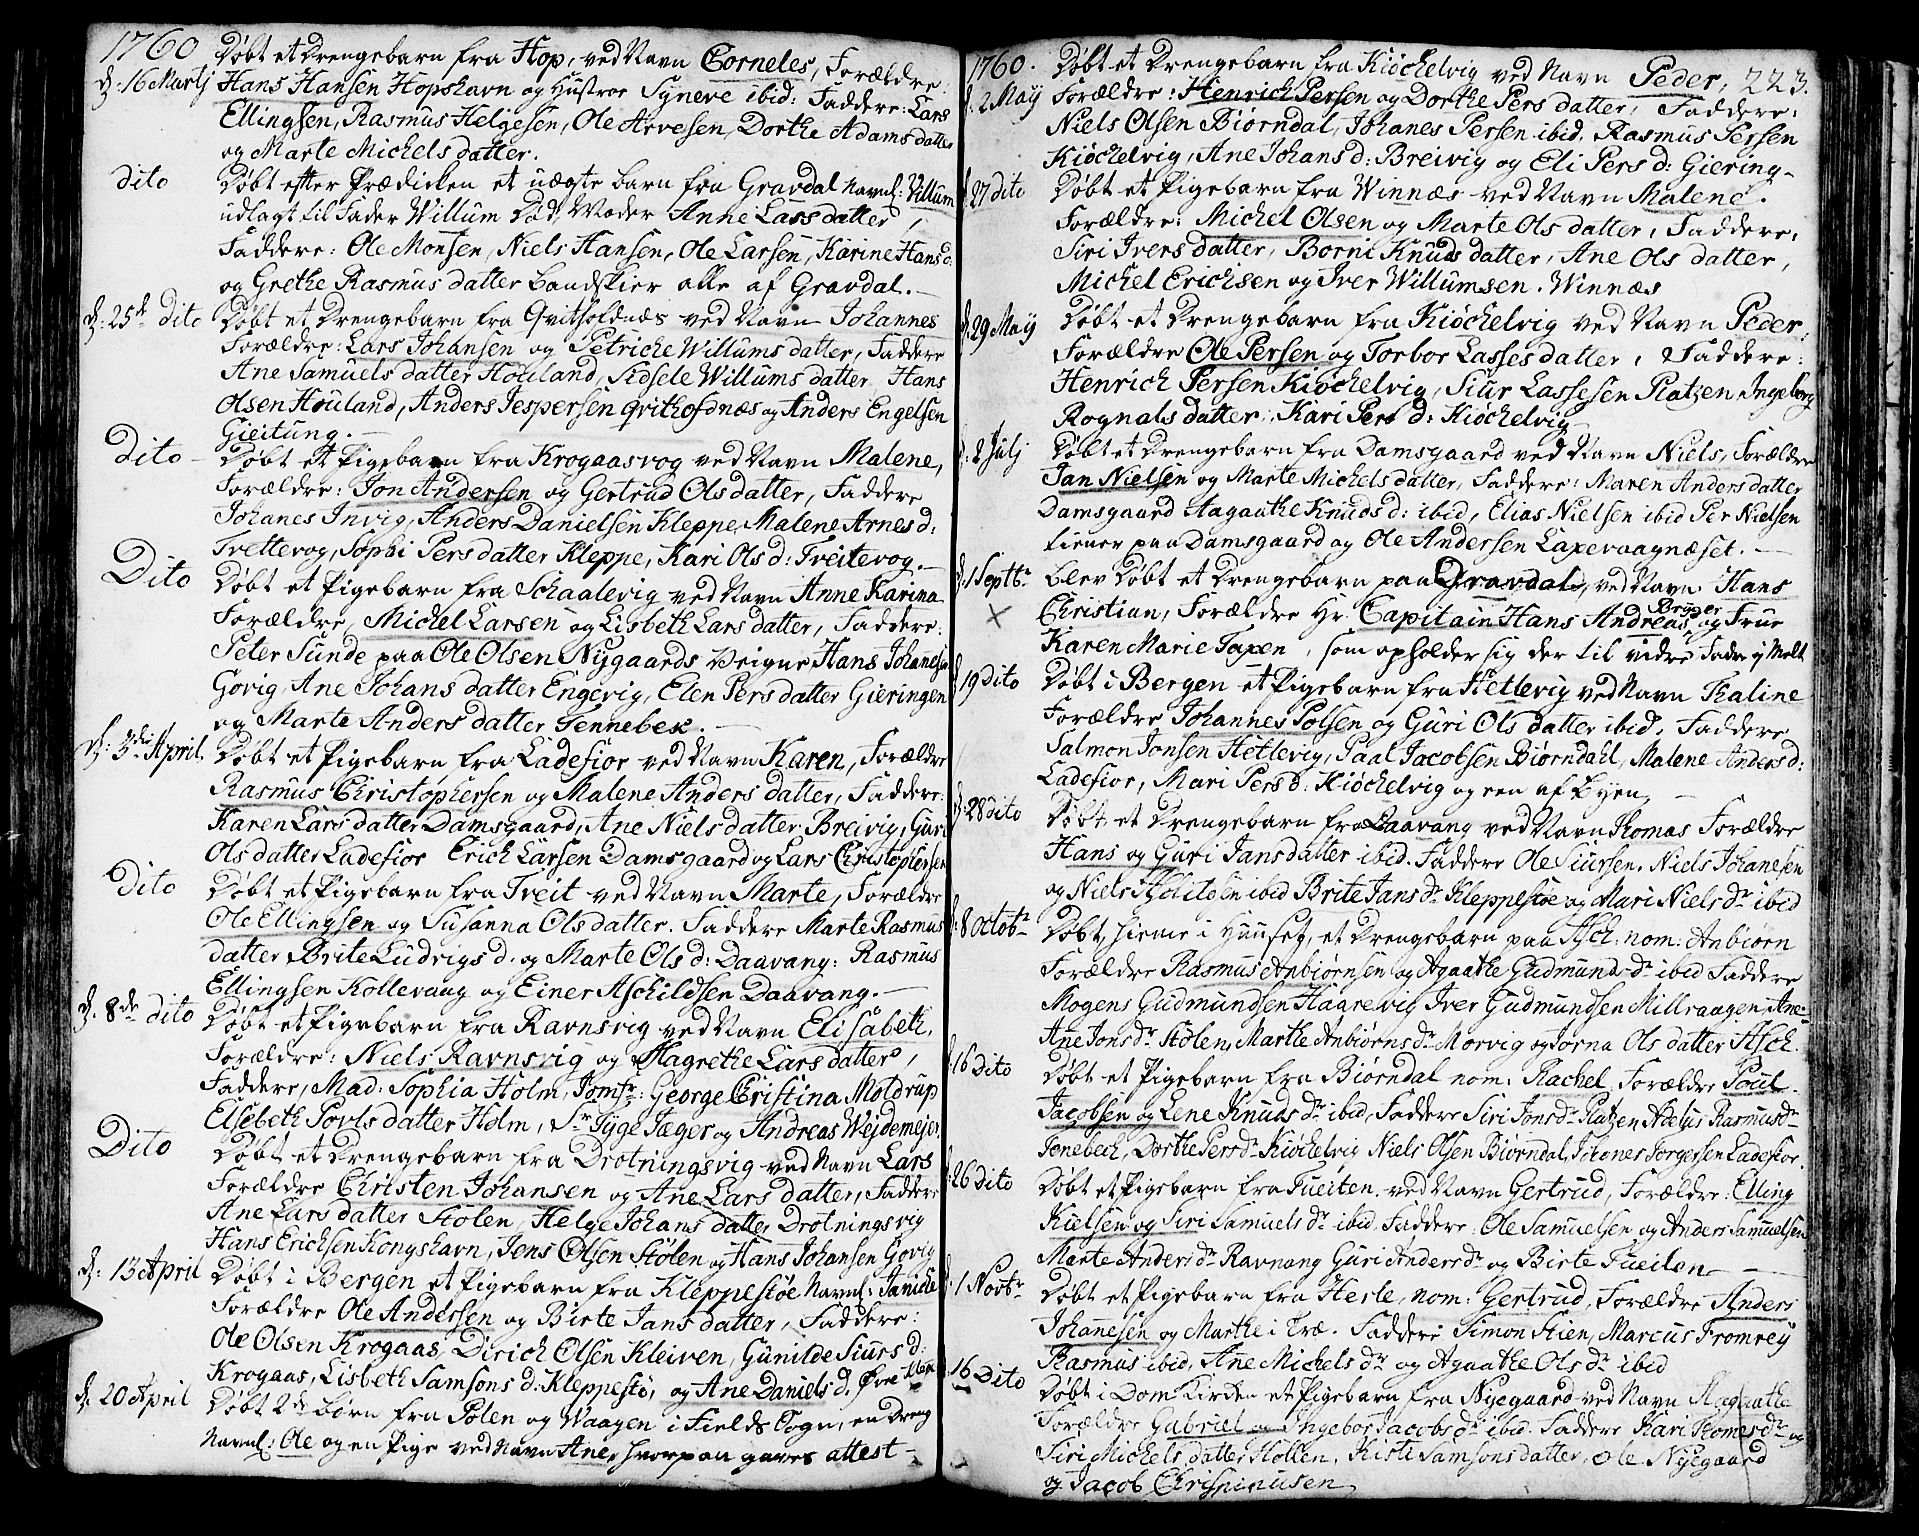 1760
Døbt et Drengebarn fra Hop, ved Navn Corneles, Forældre:
d: 16 Martj Hans Hansen Hopshavn og Hustroe Syneve ibid: Faddere: Lars
Ellingsen, Rasmus Helgesen, Ole Arvesen, Dorthe Adamsdatter
og Marte Michelsdatter.
dito Døbt efter Prædicken et uægte barn fra Gravdal Navnl: Villum
udlagt til Fader Willum Død, Moder Anne Larsdatter,
Faddere: Ole Monsen, Niels Hansen, Ole Larsen, Karine Hansd:
og Grethe Rasmusdatter Landskier alle af Gravdal.
d: 25de dito Døbt et Drengebarn fra Qvitholdnæs ved Navn Johannes
Forældre: Lars Johansen og Petriche Willumsdatter, Faddere
Ane Samuelsdatter Houland, Sidsele Willumsdatter Hans
Olsen Houland, Anders Jespersen qvithofdnæs og Anders Engelsen
Gieitung.
Dito Døbt et Pigebarn fra Krogaasvog ved Navn Malene,
Forældre: Jon Andersen og Gertrud Olsdatter, Faddere
Johanes Invig, Anders Danielsen Kleppe, Malene Arnesd:
Trettevog, Sophi Persdatter Kleppe, Kari Olsd: Treitevog.
Dito Døbt et Pigebarn fra Schaalevig ved Navn Anne Karina
Forældre, Michel Larsen og Lisbeth Larsdatter, Faddere:
Peter Sunde paa Ole Olsen Nygaards Veigne Hans Johanesen
Govig, Ane Johansdatter Engevig, Elen Persdatter Gieringen
og Marte Andersdatter Tennebek.
d: 3die April Døbt et Pigebarn fra Ladefior ved Navn Karen, Forældre
Rasmus Christophersen og Malene Andersdatter, Faddere:
Karen Larsdatter Damsgaard, Ane Nielsdatter Breivig, Guri
Olsdatter Ladefior Erich Larsen Damsgaard og Lars Christophersen
Dito Døbt et Pigebarn fra Treit ved Navn Marte, Forældre
Ole Ellingsen og Susanna Olsdatter. Faddere Marte Rasmus
datter Brite Ludvigsd. og Marte Olsd: Daavang: Rasmus
Ellingsen Kollevaag og Einer Aschildsen Daavang.
d. 8de dito Døbt et Pigebarn fra Ravnsvig ved Navn Elisabeth,
Forældre: Niels Ravnsvig og Magrethe Larsdatter,
Faddere, Mad: Sophia Holm, Jomfr: George Christina Moldrup
Elsebeth Povlsdatter Holm, Sr Tyge Jæger og Andreas Wejdemejer
Dito Døbt et Drengebarn fra Drotningsvig ved Navn Lars
Forældre Christen Johansen og Ane Larsdatter, Faddere
Ane Larsdatter Stølen, Helge Johansdatter Drotningsvig
Hans Erichsen Kongshavn, Jens Olsen Stølen og Hans Johansen Govig
d: 13 April Døbt i Bergen et Pigebarn fra Kleppestøe Navnl:
Forældre Ole Andersen og Birte Jansdatter, Faddere:
Ole Olsen Krogaas, Dirich Olsen Kleiven, Gunilde Siursd:
Krogaas, Lisbeth Samsonsd: Kleppestø, og Ane Danielsd. Øvre
d: 20 April Døbt 2de Børn fra Polen og Waagen i Fields Sogn, en Dreng
Navnl: Ole og en Pige ved Navn Ane, hvorpaa gaves attest

1760. Døbt et Drengebarn fra Kiøchelvig ved Navn Peder, 223.
d. 2 Maÿ Forældre: Henrich Persen og Dorthe Persdatter, Faddere:
Niels Olsen Biørndal, Johanes Persen ibid, Rasmus Persen
Kiøchelvig, Ane Johansd: Breivig og Eli Persd: Giering
27 dito Døbt et Pigebarn fra Winnæs ved Navn Malene.
Forældre: Michel Olsen og Marte Olsdatter, Faddere,
Siri Iversdatter, Borni Knudsdatter, Ane Olsdatter,
Michel Erichsen og Iver Willumsen. Winnæs
d. 29 Maÿ Døbt et Drengebarn fra Kiøchelvig ved Navn Peder,
Forældre Ole Persen og Torbor Lassesdatter, Faddere:
Henrich Persen Kiøchelvig, Siur Lassesen Platzen, Ingeborg
Rognalsdatter, Kari Persd: Kiøchelvig
d: 2 Julj Døbt et Drengebarn fra Damsgaard ved Navn Niels, Forældre
Jan Nielsen og Marte Michelsdatter, Faddere: Maren Andersdatter
Damsgaard Aagaathe Knudsd: ibid, Elias Nielsen ibid Per Nielsen
tiener paa Damsgaard og Ole Andersen Laxevaagnæset.
d. 1 Septbr Blev Døbt et Drengebarn paa Gravdal, ved Navn Hans
× Christian, Forældre Hr. Capitain Hans Andreas Brÿger og Frue
Karen Marie Taxen, som opholder sig der til vidre
19 Dito Døbt i Bergen et Pigebarn fra Hetlevig ved Navn Thaline
Forældre Johannes Polsen og Guri Olsdatter ibid, Faddere
Salmon Jonsen Hetlevig, Paal Jacobsen Biørndahl, Malene Andersd:
Ladefior, Mari Persd: Kiøchelvig og een af Byen,
28 dito Døbt et Drengebarn fra Daavang ved Navn Thomas Forældre
Hans og Guri Jansdatter ibid. Faddere Ole Siursen. Niels Johanesen
og Niels ibid Brite Jansdr. Kleppestøe og Mari Nielsdr ibid
8 Octobr Døbt, hieme i Huuset, et Drengebarn paa Asch: nom: Anbiørn
Forældre Rasmus Anbiørnsen og Agaathe Gudmundsdr ibid Faddere
Mogens Gudmundsen Haarelvig Iver Gudmundsen
Ane Jonsdr Stølen, Marthe Anbiørnsdr Morvig og Jorna Olsdatter Asch.
16 Dito Døbt et Pigebarn fra Biørndal nom: Rachel, Forældre Poul
Jacobsen og Lene Knudsdr ibid, Faddere Siri Jonsdr Platzen Adelus Rasmusdr
Tenebech, Dorthe Persdr Kiøchelvig Niels Olsen Biørndal, Johanes Torgersen Ladefior.
26 Dito Døbt et Pigebarn fra Tueiten. ved Navn Gertrud, Forældre: Elling
Kielsen og Siri Samuelsdr ibid. Faddere: Ole Samuelsen og Anders Samuelsen
Marte Andersdr Ravnang Guri Andersdr og Birte Tueiten
1 Novbr Døbt et Pigebarn fra Herle, nom: Gertrud, Forældre Anders
Johanesen og Marthe i Træ. Faddere Simon Stien, Marcus Fromreÿ
Rasmus ibid, Ane Michelsdr og Agaathe Olsdr ibid
16 Dito Døbt i Dom Kirken et Pigebarn fra Nyegaard ved Navn Magaathe
Forældre Gabriel og Ingebor Jacobsdr ibid. Faddere Kari Thomesdr og
Siri Michelsdatter Hollen, Kisti Samsonsdatter, Ole Nyegaard
og Jacob Chrispinusen